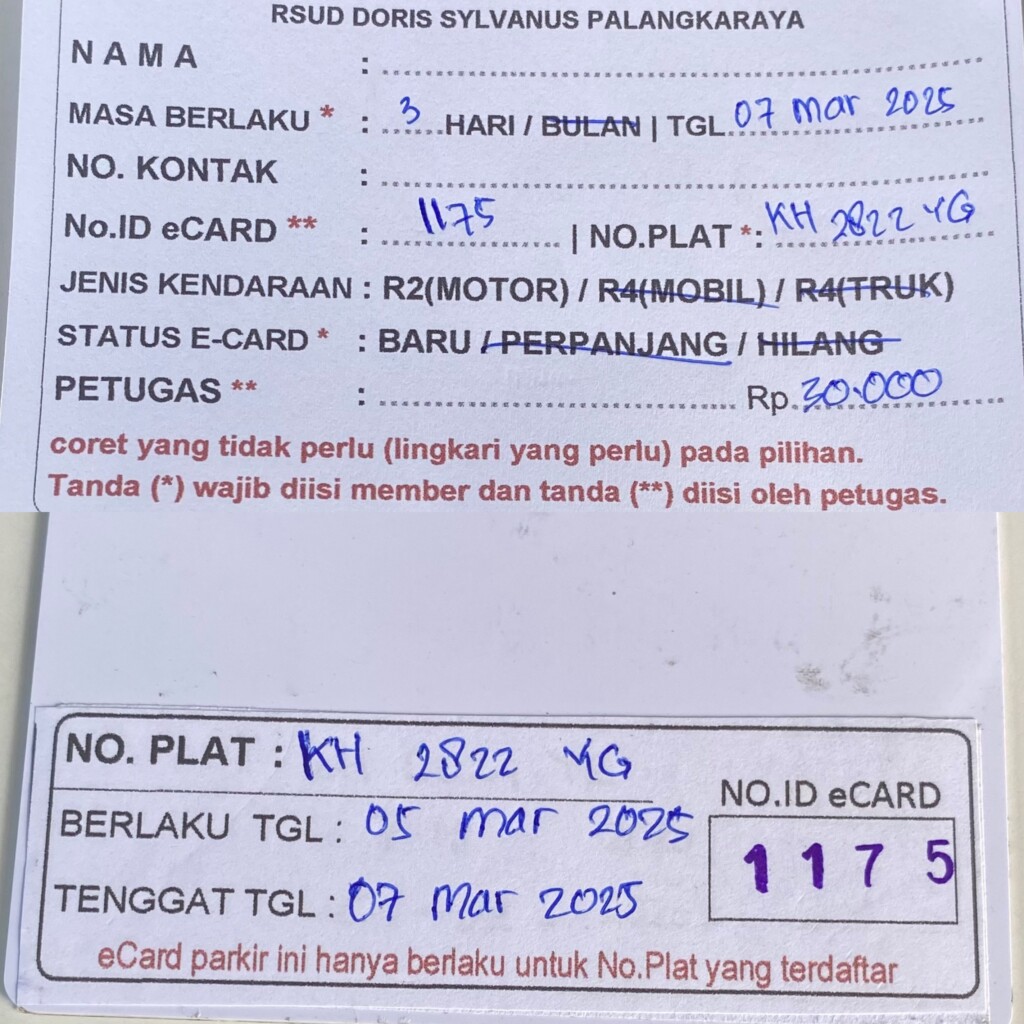 RSUD DORIS SYLVANUS PALANGKARAYA
N A M A :
MASA BERLAKU * : 3 HARI / BULAN | TGL. 07 Mar 2025
NO. KONTAK :
No.ID eCARD ** : 1175 | NO.PLAT *: KH 2822 YG
JENIS KENDARAAN : R2(MOTOR) / R4(MOBIL) / R4(TRUK)
STATUS E-CARD * : BARU / PERPANJANG / HILANG
PETUGAS ** : Rp. 30.000
coret yang tidak perlu (lingkari yang perlu) pada pilihan.
Tanda (*) wajib diisi member dan tanda (**) diisi oleh petugas.
NO. PLAT : KH 2822 YG
BERLAKU TGL : 05 Mar 2025
TENGGAT TGL : 07 Mar 2025
NO.ID eCARD
1 1 7 5
eCard parkir ini hanya berlaku untuk No.Plat yang terdaftar